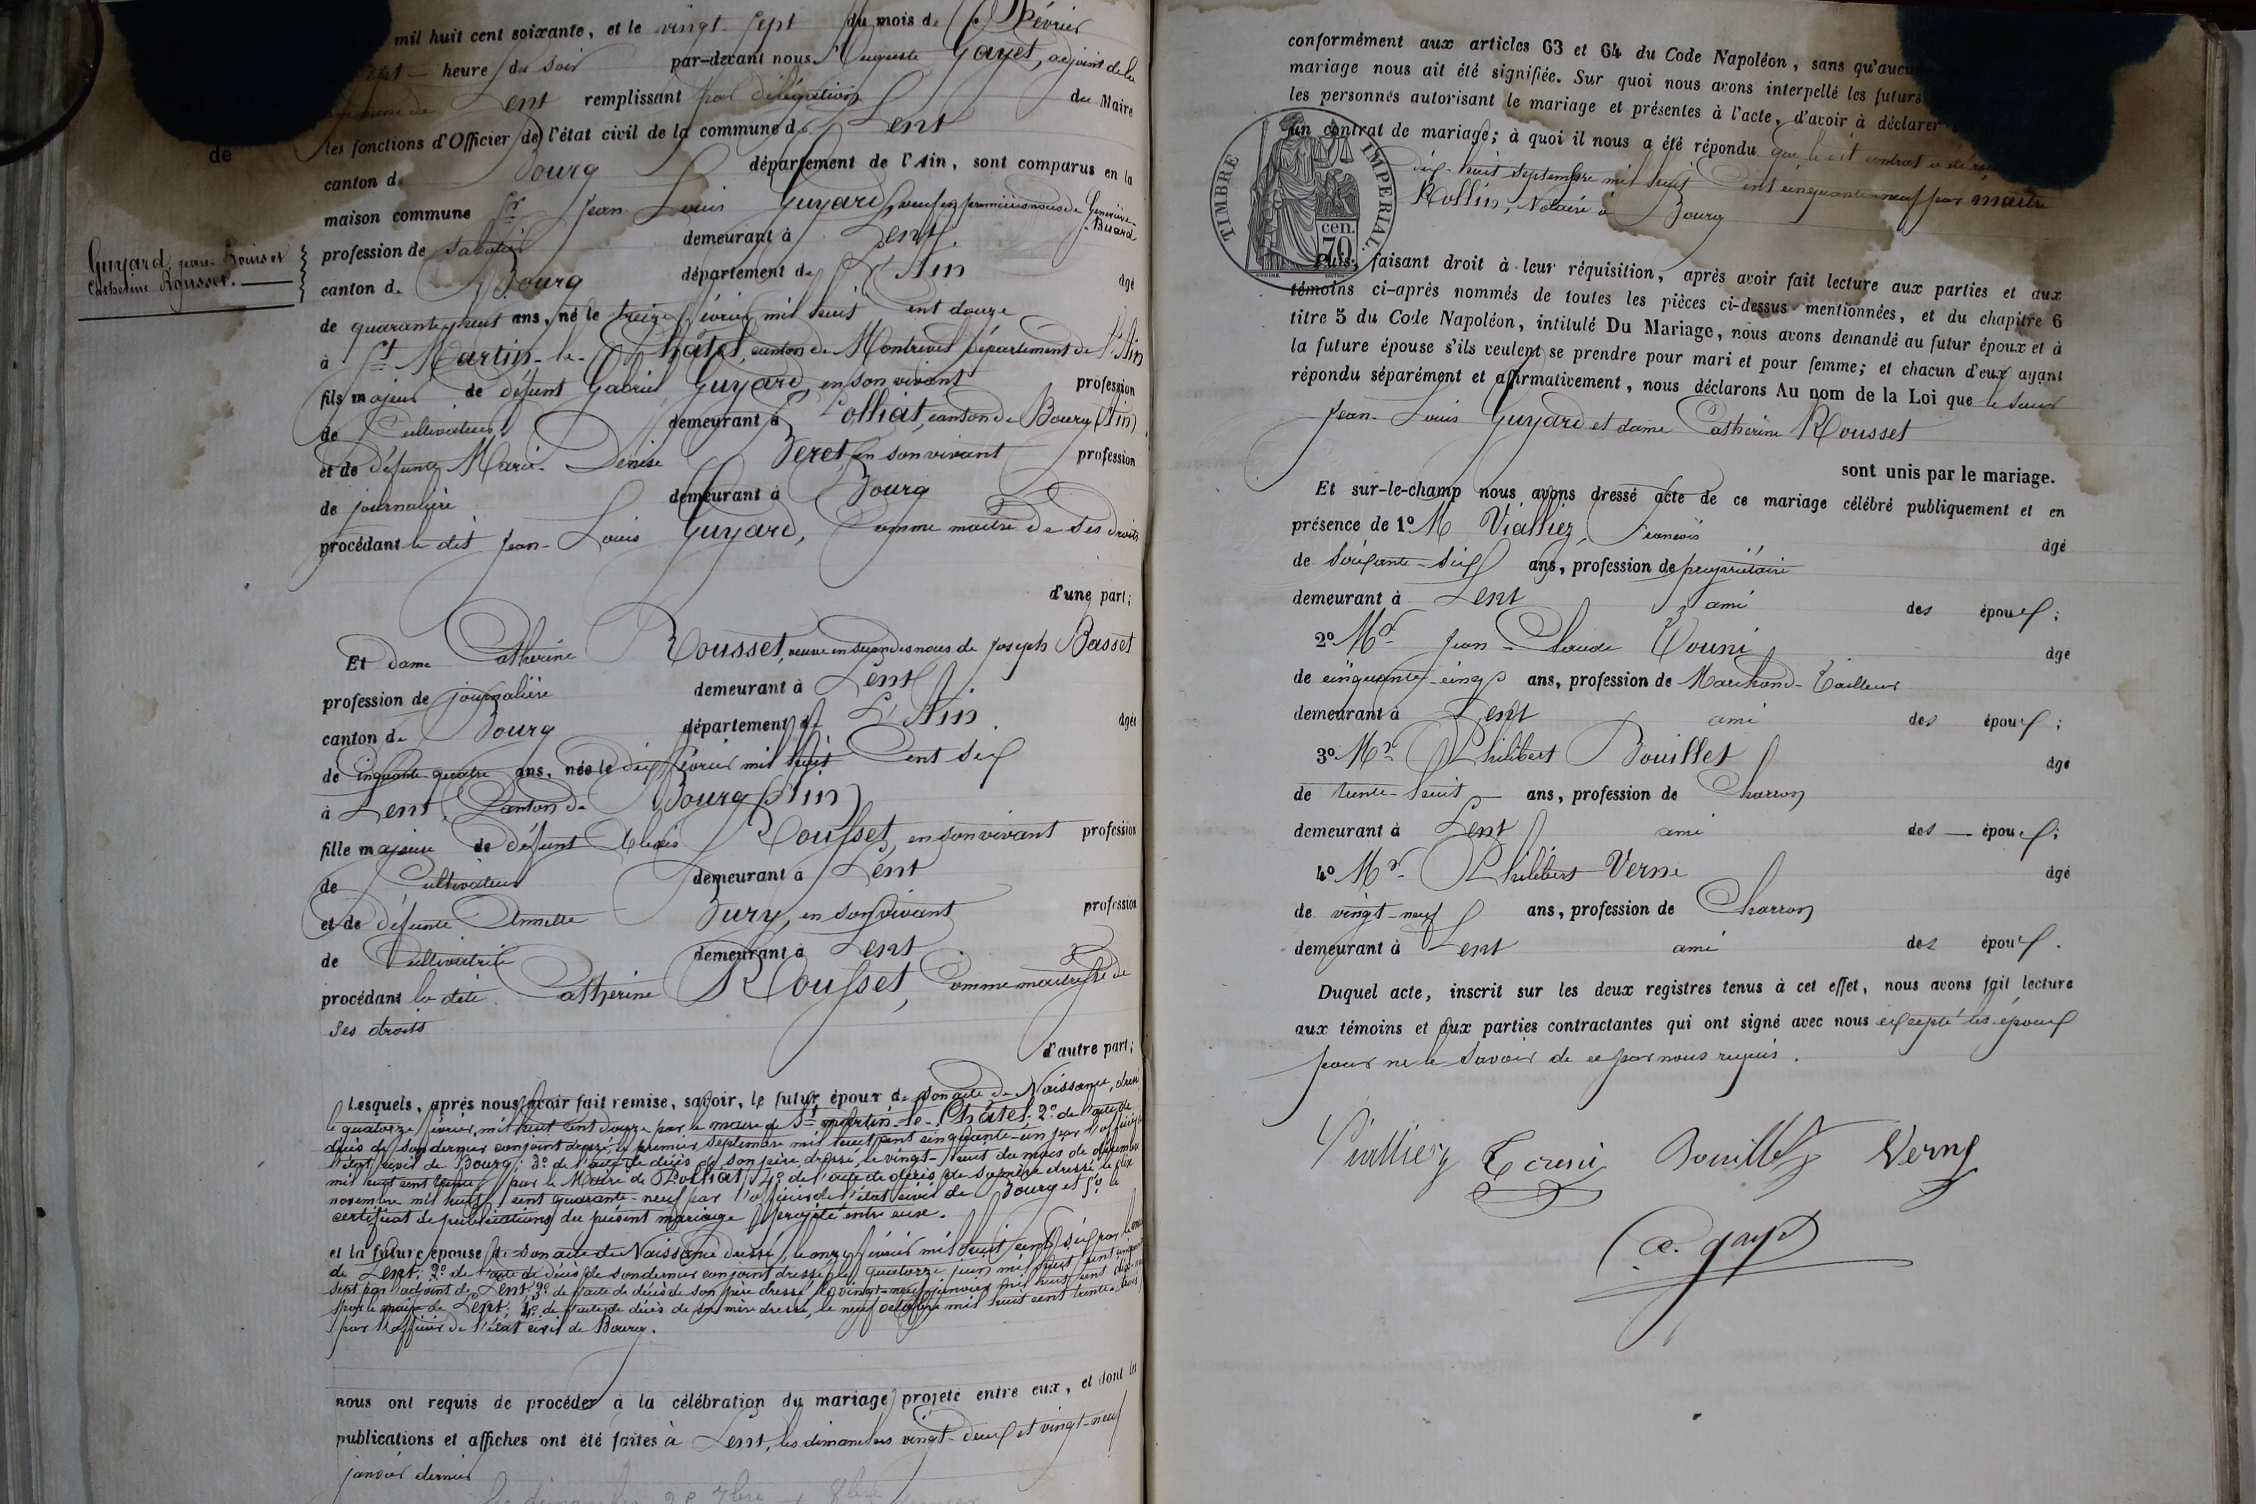 mil huit cent soixante, et le vingt-sept du mois de Février
heure du soir par-devant nous Auguste Gayet, adjoint de la
commune de Lent remplissant par délégation du Maire
les fonctions d'Officier de l'état civil de la commune de Lent
de
canton de Bourg département de l'Ain, sont comparus en la
maison commune Sr Jean-Louis Guyard, veuf en premières noces de Geneviève Buard
Guyard, jean-Louis et
Catherine Rousset.
profession de sabotier demeurant à Lent
canton de Bourg département de L'Ain âgé
de quarante-huit ans, né le treize février mil huit Cent douze
à St Martin-le-Châtel, canton de Montrevel département de l'Ain
fils majeur de défunt Gabriel Guyard, en son vivant profession
de Cultivateur demeurant à Polliat, canton de Bourg (Ain)
et de défunte Marie-Denise Veret, en son vivant profession
de journalière demeurant à Bourg
procédant le dit Jean-Louis Guyard, Comme maître de ses droits
d'une part;
Et dame Catherine Rousset, veuve en secondes noces de Joseph Basset
profession de journalière demeurant à Lent
canton de Bourg département de L'Ain âgée
de Cinquante-quatre ans, née le dix février mil huit Cent six
à Lent, Canton de Bourg (Ain)
fille majeure de défunt Alexis Rousset, en son vivant profession
de Cultivateur demeurant à Lent
et de défunte Annette Bury, en son vivant profession
de Cultivatrice demeurant à Lent
procédant la dite Catherine Rousset, Comme maîtresse de
ses droits
d'autre part;
Lesquels, après nous avoir fait remise, savoir, le futur époux de son acte de Naissance, dressé
le quatorze février, mil huit cent douze par le maire de St martin-le-Châtel. 2º de l'acte de
décès de son dernier conjoint dressé, le premier septembre mil huit cent cinquante-un par l'officier de
l'état civil de Bourg; 3º de l'acte de décès de son père dressé, le vingt-huit du mois de décembre
mil huit cent trente, par le Maire de Polliat, 4º de l'acte de décès de sa mère dressé, le dix
novembre mil huit cent quarante-neuf par l'officier de l'état civil de Bourg et 5º le
certificat de publications du présent mariage projeté entre eux.
et la future épouse de son acte de Naissance dressé, le onze février mil huit cent six par le maire
de Lent; 2º de l'acte de décès de son dernier conjoint dressé le quatorze juin mil huit cent cinquante
sept par l'adjoint de Lent; 3º de l'acte de décès de son père dressé le vingt-neuf janvier mil huit cent
par le maire de Lent, 4º de l'acte de décès de sa mère dressé, le neuf octobre mil huit cent trente-trois
par l'officier de l'état civil de Bourg.
nous ont requis de procéder à la célébration du mariage projeté entre eux, et dont les
publications et affiches ont été faites à Lent, les dimanches vingt-deux et vingt-neuf
janvier dernier
conformément aux articles 63 et 64 du Code Napoléon, sans qu'aucune
mariage nous ait été signifiée. Sur quoi nous avons interpellé les futurs
les personnes autorisant le mariage et présentes à l'acte, d'avoir à déclarer
un contrat de mariage; à quoi il nous a été répondu que le dit contrat a été
dix-huit septembre mil huit Cent cinquante-neuf par maître
Rollin, Notaire à Bourg
TIMBRE IMPERIAL.
70 cen.
Puis, faisant droit à leur réquisition, après avoir fait lecture aux parties et aux
témoins ci-après nommés de toutes les pièces ci-dessus mentionnées, et du chapitre 6
titre 5 du Code Napoléon, intitulé Du Mariage, nous avons demandé au futur époux et à
la future épouse s'ils veulent se prendre pour mari et pour femme; et chacun d'eux ayant
répondu séparément et affirmativement, nous déclarons Au nom de la Loi que le sieur
Jean-Louis Guyard et dame Catherine Rousset
sont unis par le mariage.
Et sur-le-champ nous avons dressé acte de ce mariage célébré publiquement et en
présence de 1º M Vialliez, François âgé
de soixante-six ans, profession de propriétaire
demeurant à Lent ami des époux;
2º Mr Jean-Claude Touni âgé
de cinquante-cinq ans, profession de Marchand-Tailleur
demeurant à Lent ami des époux;
3º Mr Philibert Bouillet âgé
de trente-huit ans, profession de Charron
demeurant à Lent ami des époux;
4º Mr Philibert Verne âgé
de vingt-neuf ans, profession de Charron
demeurant à Lent ami des époux.
Duquel acte, inscrit sur les deux registres tenus à cet effet, nous avons fait lecture
aux témoins et aux parties contractantes qui ont signé avec nous excepté les époux
pour ne le savoir de ce par nous requis.
Vialliez Touni Bouillet Verne
a. gayet